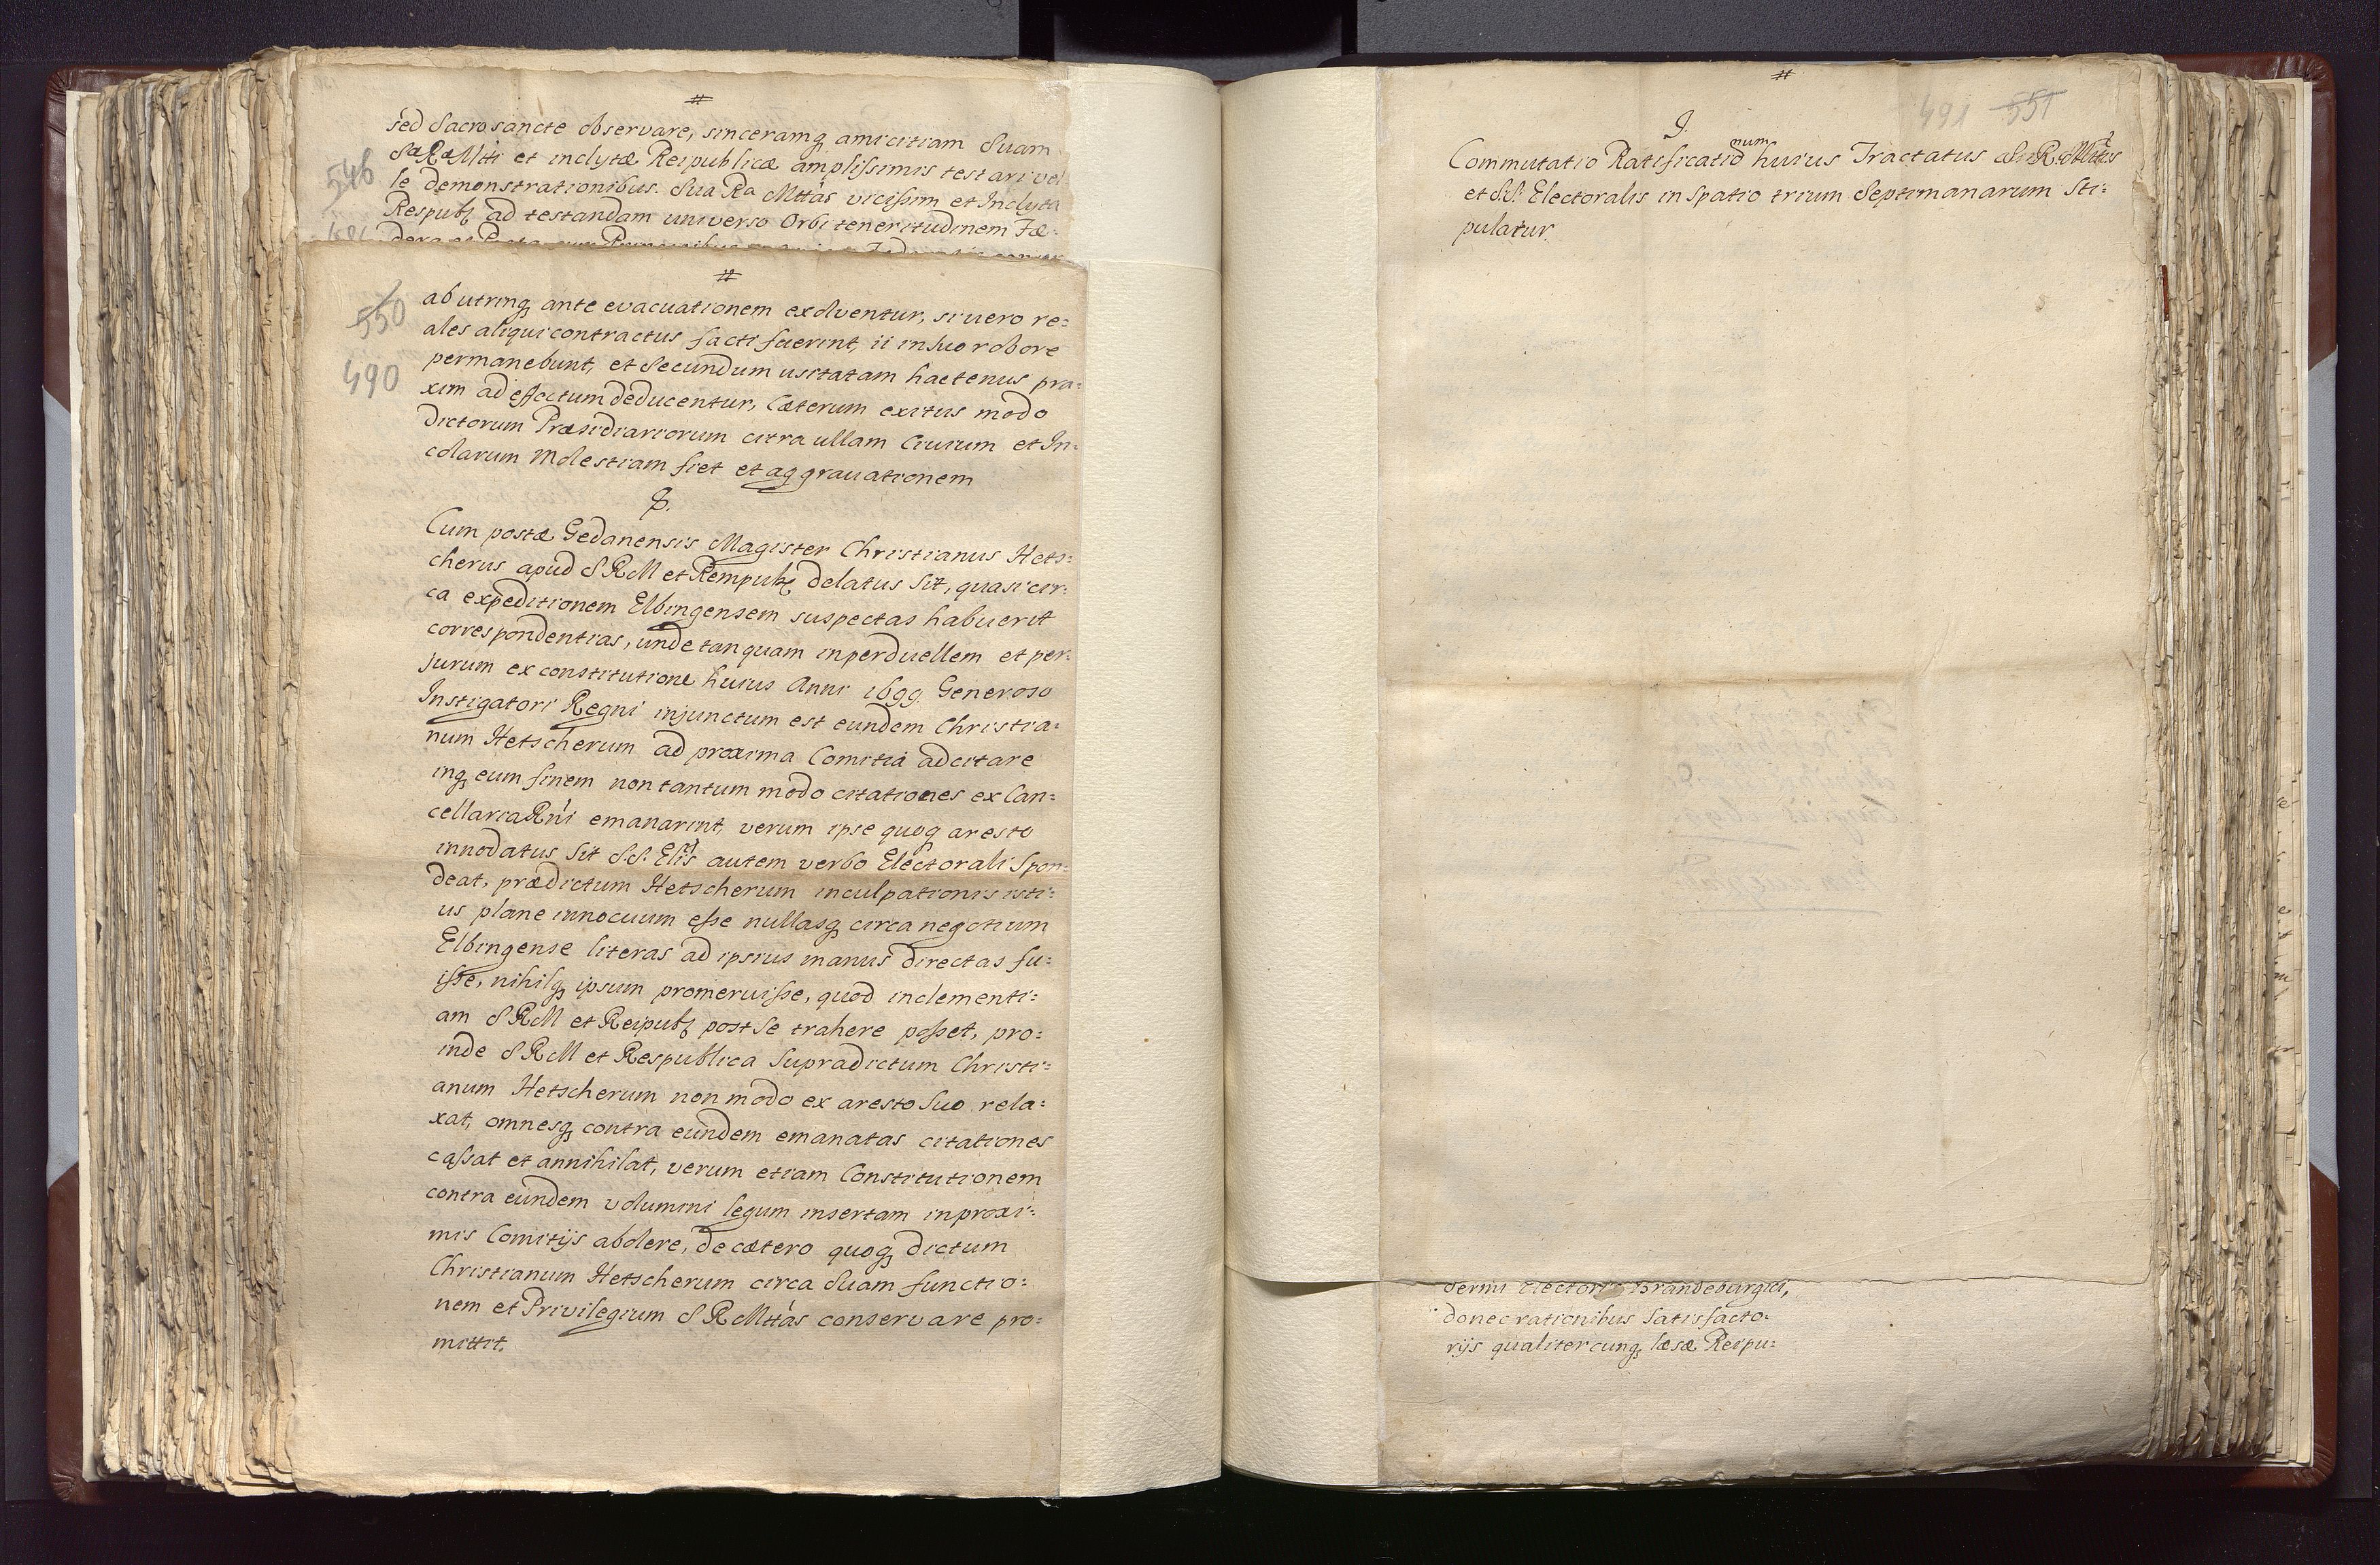 #
sed Sacrosancte observare, sinceramq amicitiam Suam
SæRæMtti et inclytæ Reipublicæ amplissimis testari vel:
le demonstrationibus. Sua Ra Mttas vicissim et Inclyta
Respubl ad testandam universo Orbi teneritudinem Fæ:
546
#
550
490
ab utrinq ante evacuationem exolventur, si vero re:
ales aliqui contractus facti fuerint, ii in suo robore
permanebunt, et Secundum usitatam hactenus pra:
xim ad effectum deducentur, Cæterum exitus modo
dictorum Præsidiariorum citra ullam Civium et In:
colarum Molestiam fiet et aggravationem
8.
Cum postæ Gedanensis Magister Christianus Hets:
cherus apud S R M et Rempubl delatus Sit, quasi cir:
ca expeditionem Elbingensem suspectas habuerit
correspondentias, unde tanquam in perduellem et per:
jurum ex constitutione huius Anni 1699 Generoso
Instigatori Regni injunctum est eundem Christia:
num Hetscherum ad proxima Comitia adcitare
inq eum finem non tantum modo citationes ex Can:
cellaria Rni emanarint, verum ipse quoq aresto
innodatus Sit S.S. Elis autem verbo Electorali Spon:
deat, prædictum Hetscherum inculpationis isti:
us plane innocuum esse nullasq circa negotium
Elbingense literas ad ipsius manus directas fu:
isse, nihilq ipsum promeruisse, quod inclementi:
am S R M et Reipubl post Se trahere posset, pro:
inde S R M et Respublica Supradictum Christi:
anum Hetscherum non modo ex aresto Suo rela:
xat, omnesq contra eundem emanatas citationes
cassat et annihilat, verum etiam Constitutionem
contra eundem volumini legum insertam in proxi:
mis Comitijs abolere, de cætero quoq dictum
Christianum Hetscherum circa Suam functio:
nem et Privilegium S R Mttas conservare pro:
mittit.
#
491 551
9.
Commutatio Ratificationum huius Tractatus
et S.S. Electoralis in Spatio trium Septimanarum Sti:
pulatur.
Brandeburgici,
donec rationibus Satisfacto:
rijs qualitercunq læsæ Reipu: